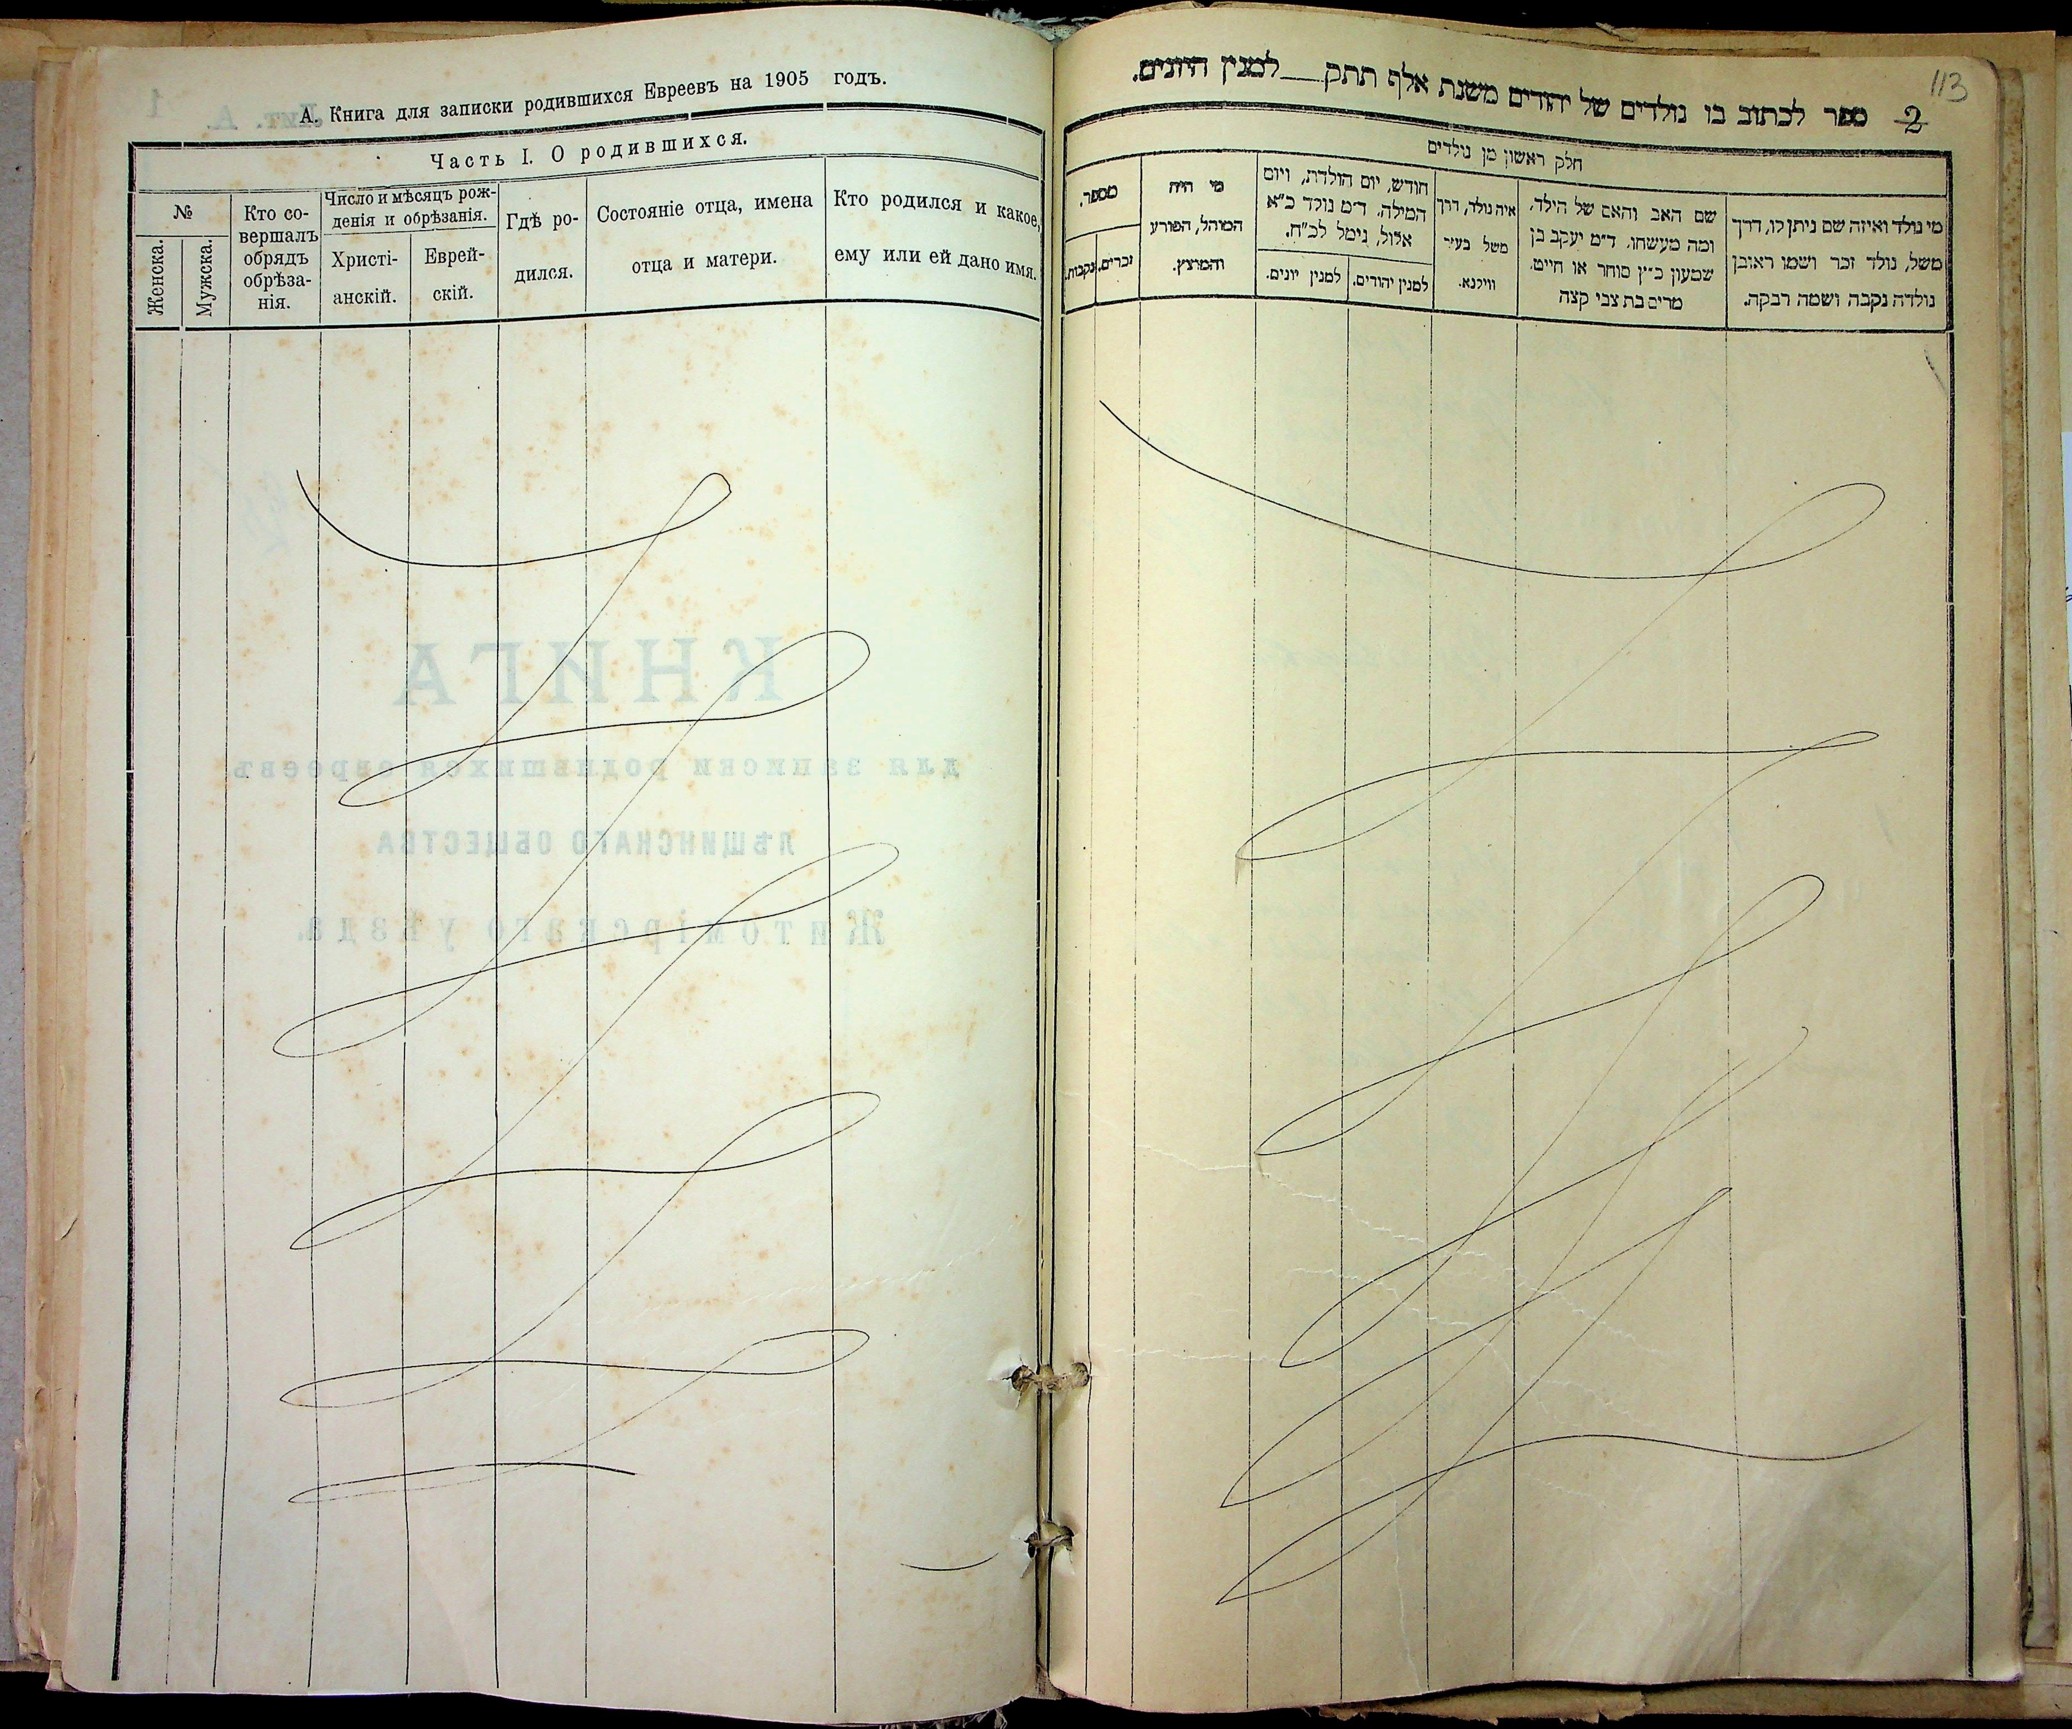 А. Книга для записки родившихся Евреевъ на 1905 годъ.
Часть I. О родившихся.
№
Женска.
Мужска.
Кто со-
вершалъ
обрядъ
обрѣза-
нія.
Число и мѣсяцъ рож-
денія и обрѣзанія.
Христі-
анскій.
Еврей-
скій.
Гдѣ ро-
дился.
Состояніе отца, имена
отца и матери.
Кто родился и какое,
ему или ей дано имя.
Лит. А.
1
КНИГА
для записки родившихся евреевъ
ЛѢЩИНСКАГО ОБЩЕСТВА
Житомірскаго уѣзда.
113
2
ספר לכתוב בו נולדים של יהודים משנת אלף תתק__למנין היונים.
חלק ראשון מן נולדים
מספר.
זכרים.
נקבות.
מי היה
המוהל, הפורע
והמוצץ.
חודש, יום הולדת, ויום
המילה. ד״מ נולד כ״א
אלול, נימל לכ״ח.
למנין יונים.
למנין יהודים.
איה נולד, דרך
משל בעיר
ווילנא.
שם האב והאם של הילד.
ומה מעשהו. ד״מ יעקב בן
שמעון כ״ץ סוחר או חייט.
מרים בת צבי קצה
מי נולד ואיזה שם ניתן לו, דרך
משל, נולד זכר ושמו ראובן
נולדה נקבה ושמה רבקה.